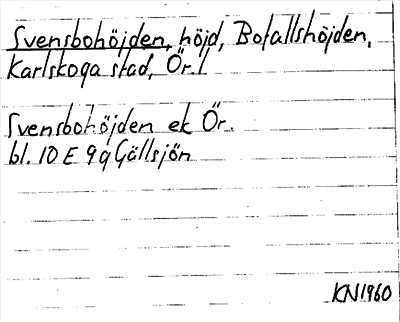 Svensbohöjden, höjd, Bofallshöjden,
Karlskoga stad, Ör.l
Svensbohöjden ek Ör.
bl. 10 E 9 g Gällsjön
KN1960